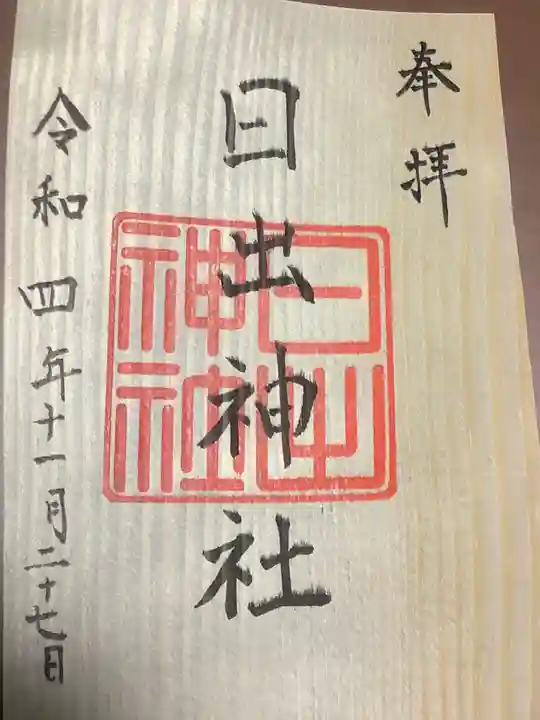 奉拝
日出神社
日出
神社
令和四年十一月二十七日